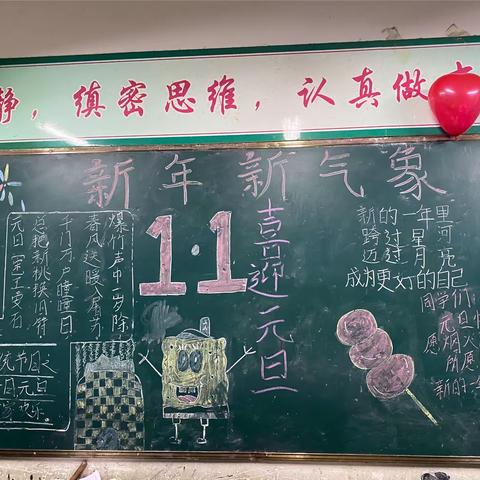 静，缜密思维，认真做
新年新气象
元旦（宋）王安石
爆竹声中一岁除
春风送暖入屠苏
千门万户曈曈日
总把新桃换旧符
1.1
喜迎元旦
新的一年里
跨过星河
迈过月亮
成为更好的自己
同学们
元旦快
愿烟火
所愿
新的一
统节日之
日元旦